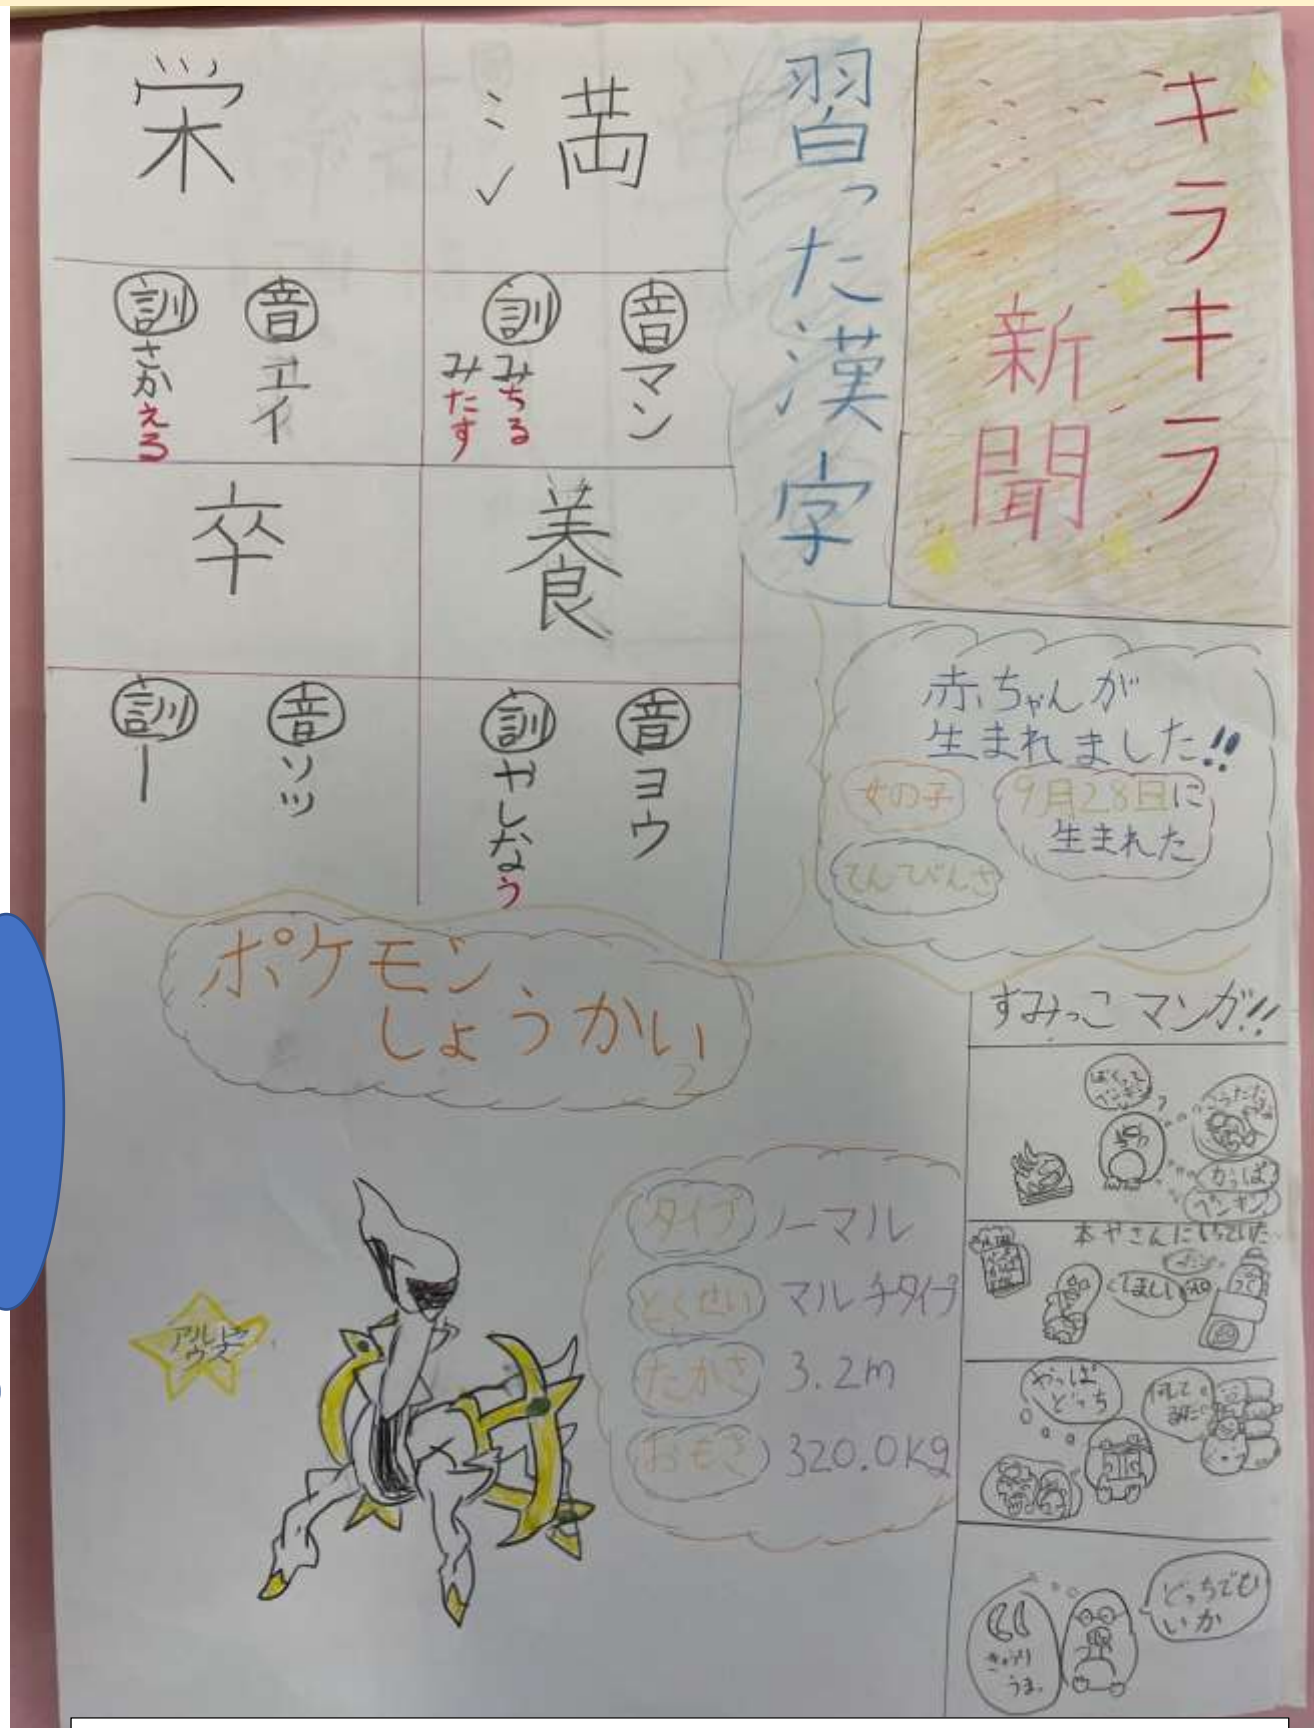 キラキラ
新聞
習った漢字
満
音 マン
訓 みちる
みたす
栄
音 エイ
訓 さかえる
養
音 ヨウ
訓 やしなう
卒
音 ソツ
訓 ー
赤ちゃんが
生まれました!!
女の子
9月28日に
生まれた
てんびんざ
ポケモン
しょうかい
2
アルセ
ウス
タイプ ノーマル
とくせい マルチタイプ
たかさ 3.2m
おもさ 320.0kg
すみっこ マンガ!!
ぼくって
ペンギン
?
かっぱ
ペンギン
本やさんに
ほしい
やっぱ
どっち
どっちでも
いか
きゅうり
うま。